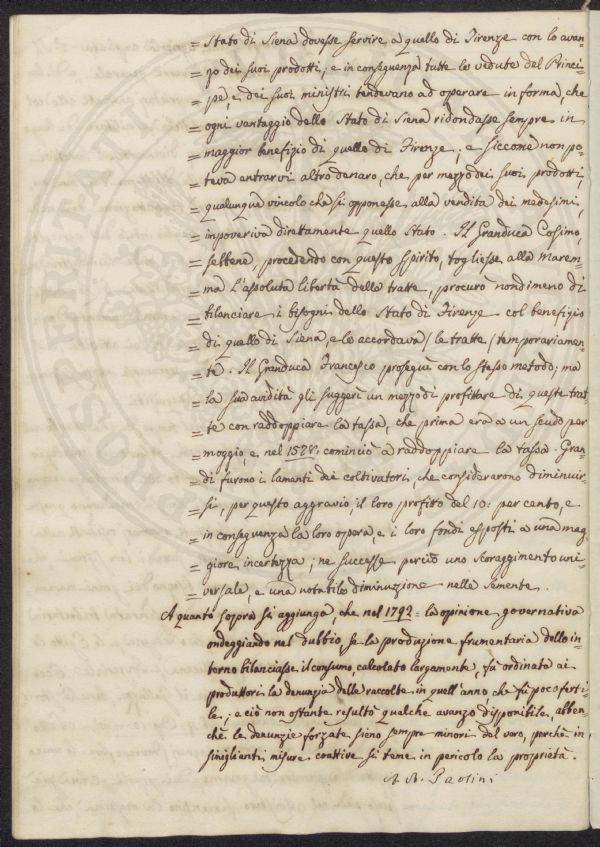 = Stato di Siena dovesse servire a quello di Firenze con lo avan-
= zo dei suoi prodotti; e in conseguenza tutte le vedute del Princi-
= pe, e dei suoi ministri tendevano ad operare in forma, che
= ogni vantaggio dello Stato di Siena ridondasse sempre in
= maggior benefizio di quello di Firenze; e siccome non po-
= teva entrarvi altro denaro, che per mezzo dei suoi prodotti,
= qualunque vincolo che si opponesse alla vendita dei medesimi,
= impoveriva direttamente quello Stato. Il Granduca Cosimo,
= sebbene, procedendo con questo spirito, togliesse alla Marem-
= ma l'assoluta libertà delle tratte, procurò nondimeno di
= bilanciare i bisogni dello Stato di Firenze col benefizio
= di quello di Siena, e le accordava (le tratte) temporariamen-
= te. Il Granduca Francesco proseguì con lo stesso metodo; ma
= la sua avidità gli suggerì un mezzo di profittare di queste trat-
= te con raddoppiare la tassa, che prima era a un scudo per
= moggio, e nel 1578. cominciò a raddoppiare la tassa. Gran-
= di furono i lamenti dei coltivatori, che considerarono diminuir-
= si, per questo aggravio, il loro profitto del 10: per cento, e
= in conseguenza la loro opera, e i loro fondi esposti a una mag-
= giore incertezza; ne successe perciò uno scoraggimento uni-
= versale, e una notabile diminuzione nelle semente.
A quanto sopra si aggiunga, che nel 1792 = la opinione governativa
ondeggiando nel dubbio, se la produzione frumentaria dello in-
terno bilanciasse il consumo, calcolato largamente, fù ordinata ai
produttori la denunzia delle raccolte in quell'anno che fù poco ferti-
le, e ciò non ostante resultò qualche avanzo disponibile, abben-
chè le denunzie forzate sieno sempre minori del vero, perchè in
simiglianti misure coattive si teme in pericolo la proprietà.
A. B. Paolini